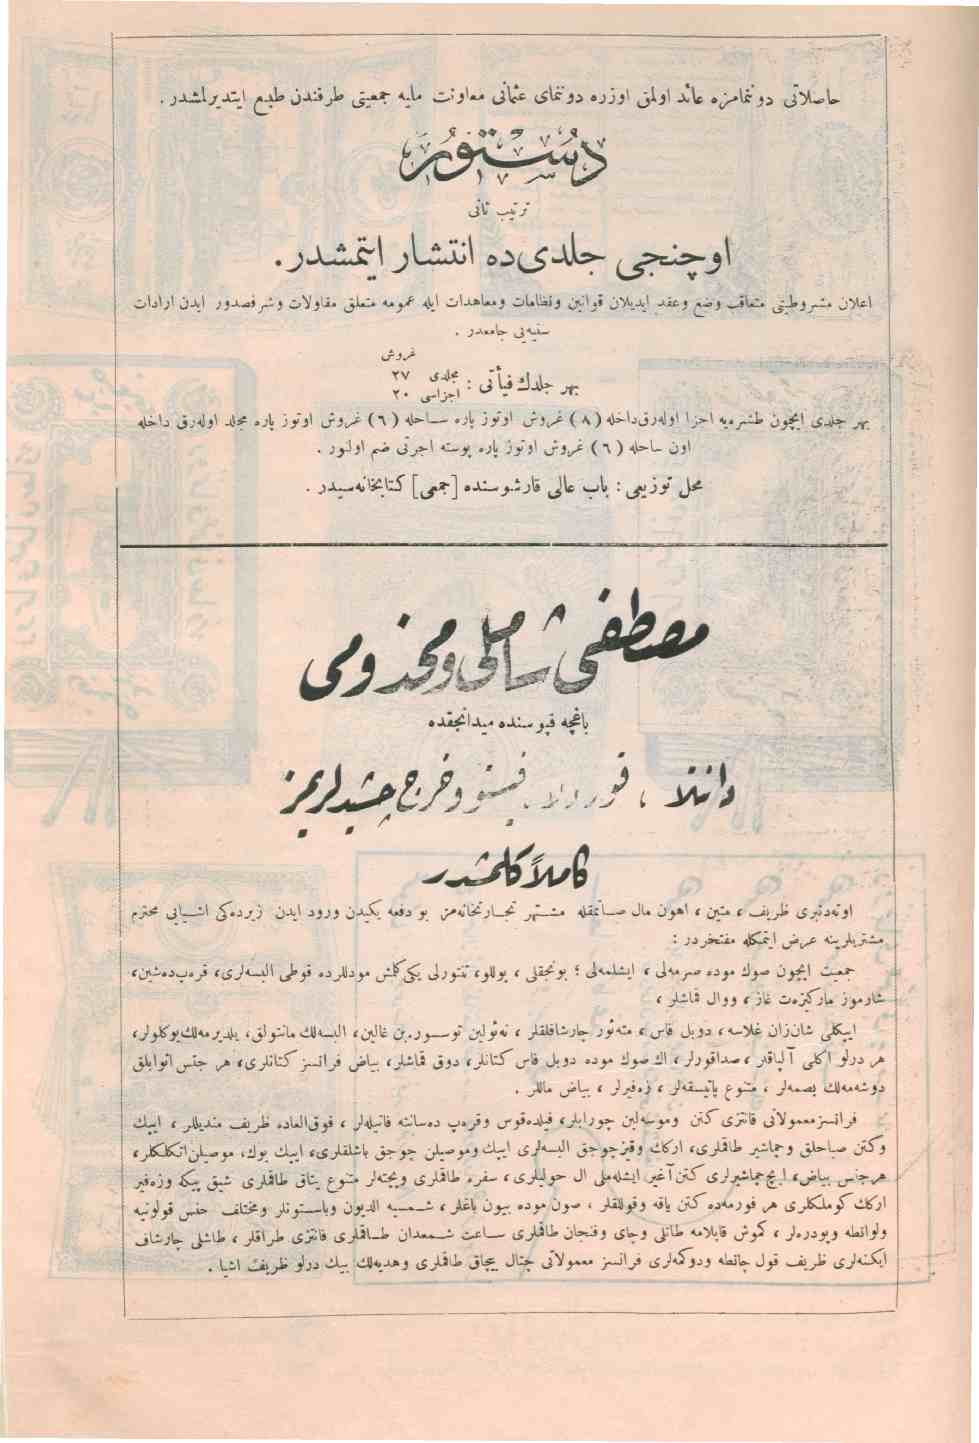 حاصلاتی دوننمامزه عائد اولمق اوزره دوننمای عثمانی معاونت ملیه جمعیتی طرفندن طبع ایتدیرلمشدر .
دستور
ترتیب ثانی
اوچنجی جلدی ده انتشار ایتمشدر .
اعلان مشروطیتی متعاقب وضع وعقد ایدیلان قوانین ونظامات ومعاهدات ایله عمومه متعلق مقاولات وشرفصدور ایدن ارادات
سنیه یی جامعدر .
غروش
بهر جلدك فیأتی : مجلدی ٢٧
اجزاسی ٢٠
بهر جلدی ایچون طشره یه اجزا اوله رق داخله (٨) غروش اوتوز پاره ساحله (٦) غروش اوتوز پاره مجلد اوله رق داخله
اون ساحله (٦) غروش اوتوز پاره پوسته اجرتی ضم اولنور .
محل توزیعی : باب عالی قارشوسنده [جمعی] کتابخانه سیدر .
مصطفی شاملی ومخدومی
باغچه قپوسنده میدانجقده
دانتلا ، فوردلا ، فیستو وخرج چشیدلریمز
کاملاً کلمشدر
اوته دنبری ظریف ، متین ، اهون مال صاتمقله مشتهر تجارتخانه مز بو دفعه یکیدن ورود ایدن زیرده کی اشیایی محترم
مشتریلرینه عرض ایتمکله مفتخردر :
جمعیت ایچون صوك موده صرمه لی ، ایشلمه لی ؛ بونجقلی ، پوللو ، تنتورلی یکی کلمش موده للرده قوطی البسه لری ، قره پ ده شین ،
شارموز مارکیزه ت غاز ، ووال قماشلر ،
ایپکلی شان ژان غلاسه ، دوبل فاس ، مته ئور چارشافلقلر ، البسه لك مانتولق ، یلدیرمه لك یوکلولر ،
هر درلو اکلی آلپاقار ، صداقورلر ، اك صوك موده دوبل فاس کتانلر ، دوق قماشلر ، بیاض فرانسز کتانلری ، هر جنس اثوابلق
دوشه مه لك بصمه لر ، متنوع پاتیسقه لر ، زه فیرلر ، بیاض ماللر .
فرانسز معمولاتی فانتزی کتن وموسه لین چورابلر ، فیلده قوس وقره پ ده سانته فانیله لر ، فوق العاده ظریف مندیللر ، ایپك
وکتن صباحلق وچماشیر طاقملری ، ارکك وقیز چوجق البسه لری ایپك وموصیلن چوجق باشلقلری ، ایپك یوك ، موصیلن اتکلکلر ،
هر جنس بیاض ، ایچ چماشیرلری کتن آغیر ایشله ملی ال حولیلری ، سفره طاقملری وپچته لر متنوع یتاق طاقملری شیق پیکه وزه فیر
ارکك کوملکلری هر فورمه ده کتن یاقه وقوللقلر ، صون موده بیون باغلر ، شمسیه الدیون وباستونلر ومختلف جنس قولونیه
ولوانطه وپودره لر ، کموش قاپلامه طاتلی وچای وفنجان طاقملری ساعت شمعدان طاقملری فانتزی طراقلر ، طاشلی چارشاف
ایکنه لری ظریف قول چانطه ودوکمه لری فرانسز معمولاتی چتال بیچاق طاقملری وهدیه لك بیك درلو ظریف اشیا .